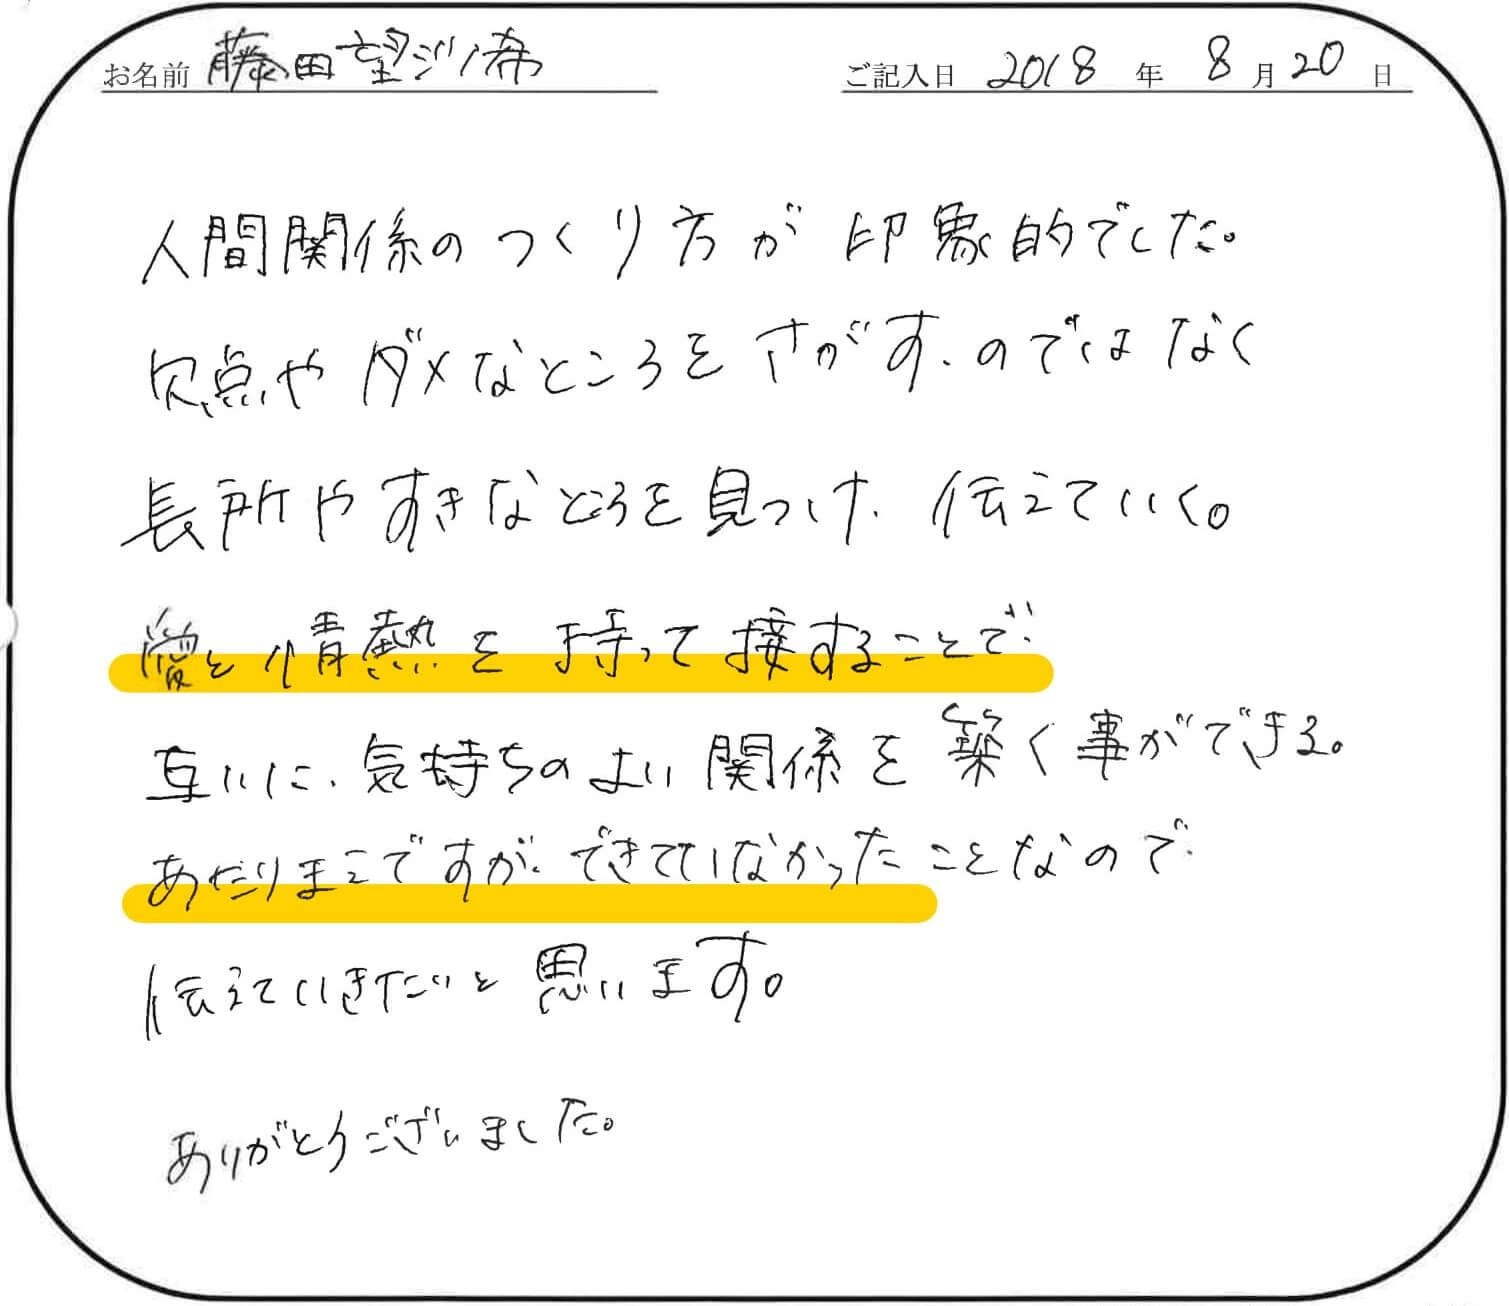 お名前 藤田望ジノ希 ご記入日 2018 年 8 月 20 日
人間関係のつくり方が印象的でした。
欠点やダメなところをさがす、のではなく
長所やすきなところを見つけ、伝えていく。
愛と情熱を持って接することで、
互いに、気持ちのよい関係を築く事ができる。
あたりまえですが、できていなかったことなので、
伝えていきたいと思います。
ありがとうございました。